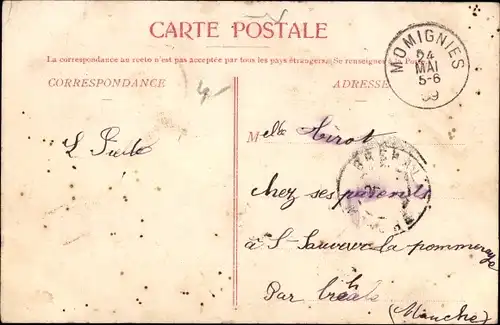 CARTE POSTALE
La correspondance au recto n'est pas acceptée par tous les pays étrangers. Se renseigner
CORRESPONDANCE
ADRESSE
MOMIGNIES
24
MAI
5-6
09
4-
Melle Hirot
chez ses parents
à St Sauveur la pommeraye
Par Bréhal
(Manche)